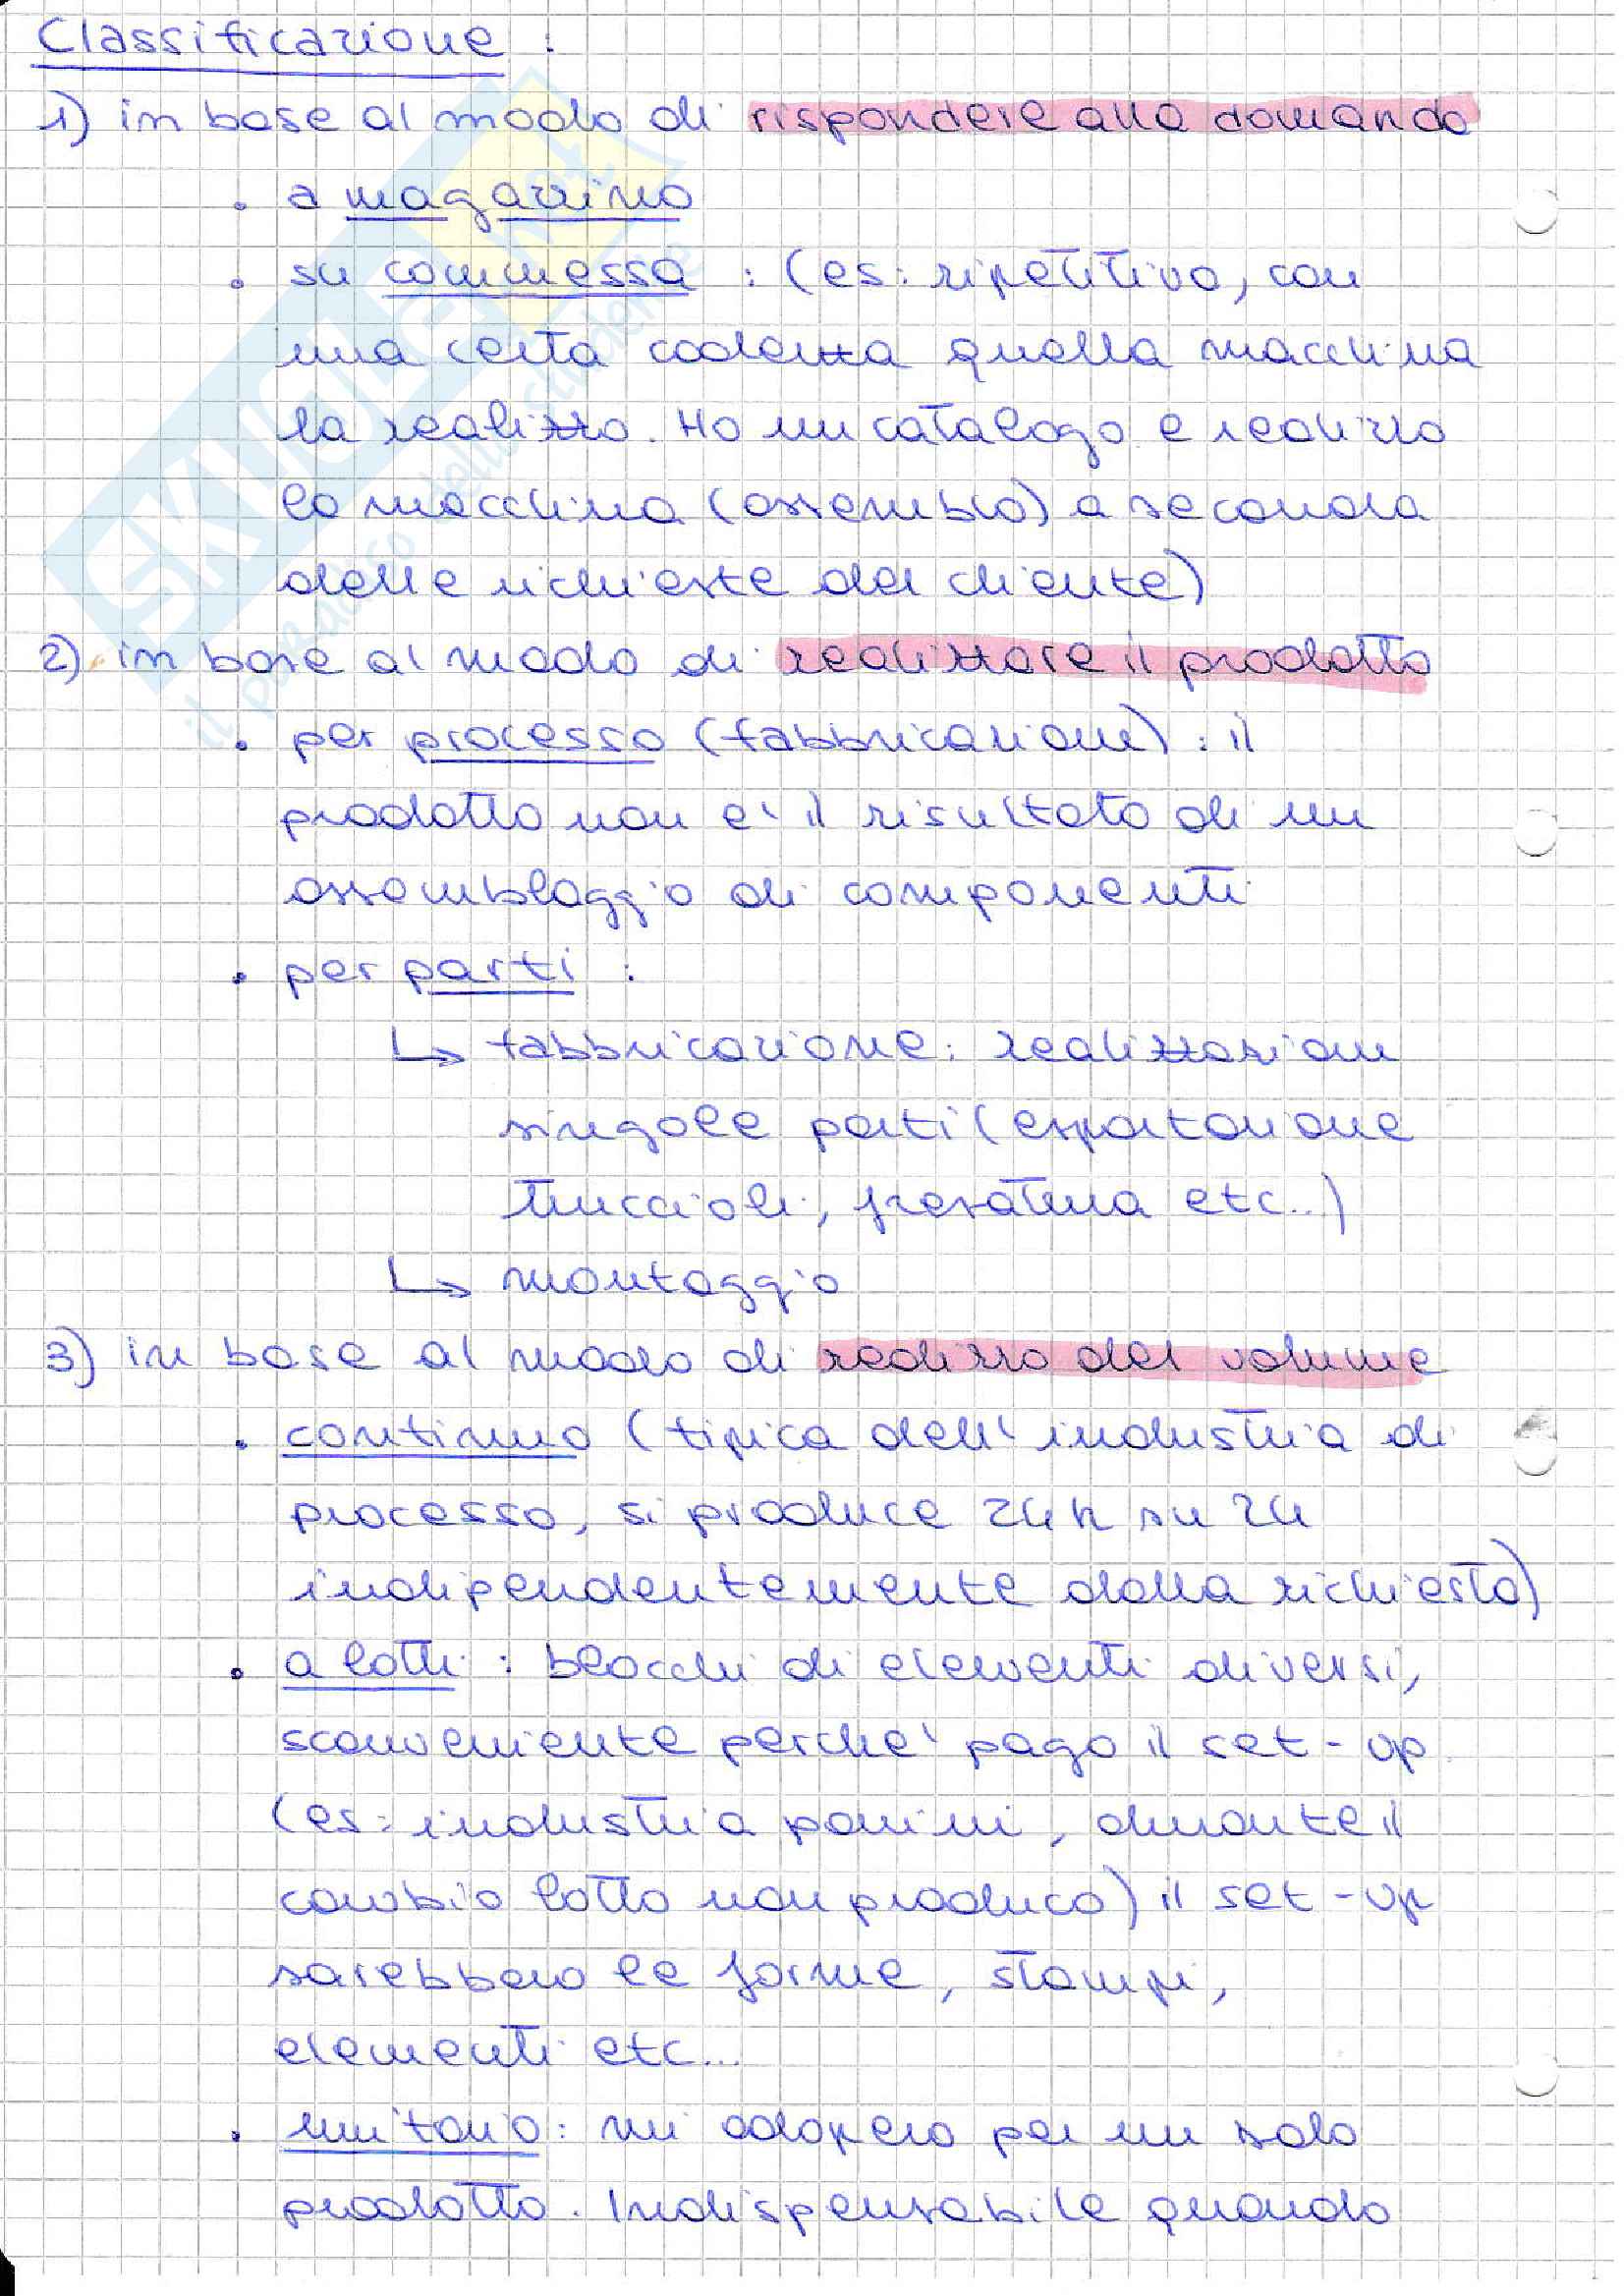 Classificazione :
1) in base al modo di rispondere alla domanda
• a magazzino
• su commessa : (es: ripetitivo, con
una certa cadenza quella macchina
la realizzo. Ho un catalogo e realizzo
la macchina (assemblo) a seconda
delle richieste del cliente)
2) in base al modo di realizzare il prodotto
• per processo (fabbricazioni) : il
prodotto non e' il risultato di un
assemblaggio di componenti
• per parti :
↳ fabbricazione: realizzazioni
singole parti (esportazione
truccioli, fresatura etc..)
↳ montaggio
3) in base al modo di realizzo del volume
• continuo (tipica dell'industria di
processo, si produce 24h su 24
indipendentemente dalla richiesta)
• a lotti : blocchi di elementi diversi,
sconveniente perche' pago il set-up
(es: industria panini, durante il
cambio lotto non produco) il set-up
sarebbero le forme, stampi,
elementi etc...
• unitario: mi adopero per un solo
prodotto. Indispensabile quando
SKUOLA.net
il paradiso dello studente